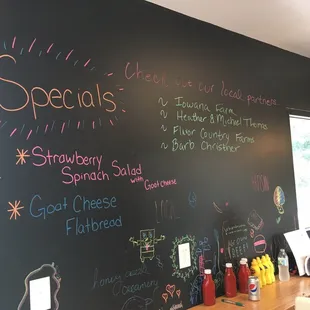 Specials
Strawberry
Spinach Salad
with Goat Cheese
Goat Cheese
Flatbread
Check out our local partners
~ Iowana Farm
~ Heather & Michael Thomas
~ Fluor Country Farms
~ Barb Christher
honey
creamery